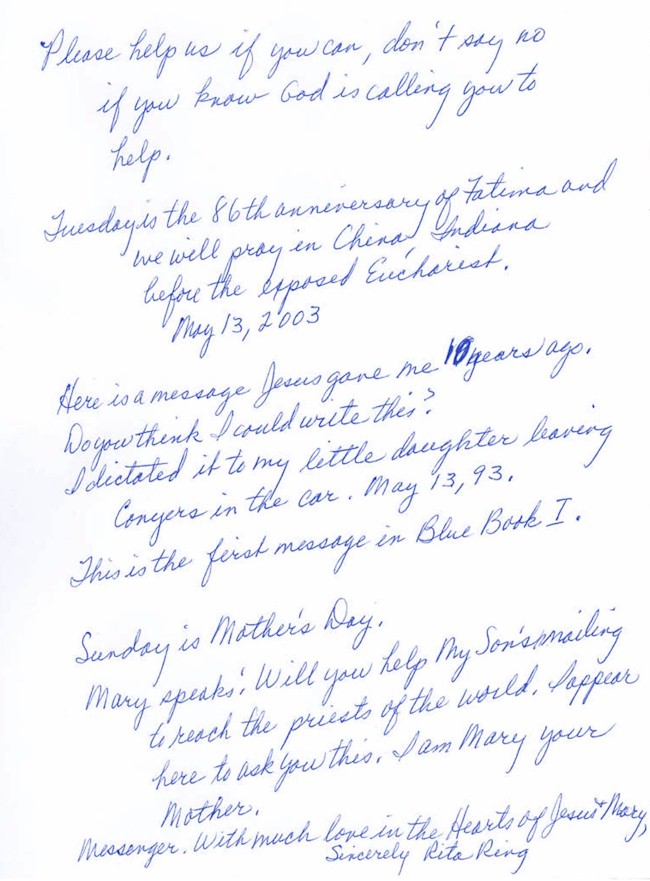 Please help us if you can, don't say no
if you know God is calling you to
help.
Tuesday is the 86th anniversary of Fatima and
we will pray in China, Indiana
before the exposed Eucharist.
May 13, 2003
Here is a message Jesus gave me 10 years ago.
Do you think I could write this?
I dictated it to my little daughter leaving
Conyers in the car. May 13, 93.
This is the first message in Blue Book I.
Sunday is Mother's Day.
Mary speaks: Will you help My Son's mailing
to reach the priests of the world. I appear
here to ask you this. I am Mary your
Mother.
Messenger. With much love in the Hearts of Jesus & Mary,
Sincerely Rita Ring